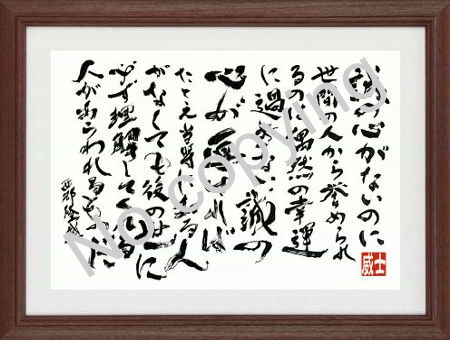 誠の心がないのに
世間の人から誉められ
るのは偶然の幸運
に過ぎない 誠の
心が有れば
たとえ当時にわかる人
がなくても後の世に
必ず理解してくれる
人があらわれるものだ
西郷隆盛
威士
No copying